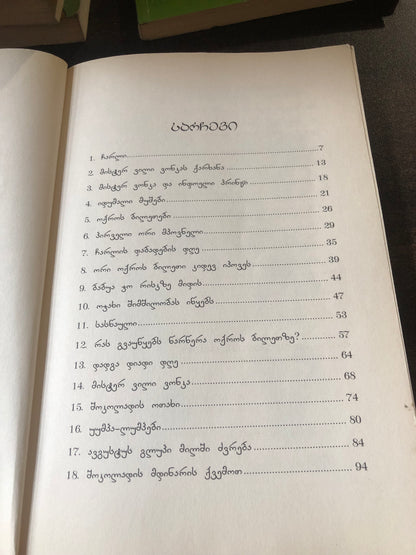 სარჩევი
1. ჩარლი.......................................................................7
2. მისტერ ვილი ვონკას ქარხანა..........................13
3. მისტერ ვონკა და ინდოელი პრინცი................18
4. იდუმალი მუშები..................................................21
5. ოქროს ბილეთები.................................................26
6. პირველი ორი მპოვნელი....................................29
7. ჩარლის დაბადების დღე.....................................35
8. ორი ოქროს ბილეთი კიდევ იპოვეს..................39
9. ბაბუა ჯო რისკზე მიდის......................................44
10. ოჯახი შიმშილობას იწყებს................................47
11. სასწაული...............................................................53
12. რას გვაუწყებს წარწერა ოქროს ბილეთზე?...........57
13. დადგა დიადი დღე...............................................64
14. მისტერ ვილი ვონკა.............................................68
15. შოკოლადის ოთახი..............................................74
16. უუმპა-ლუმპები....................................................80
17. ავგუსტუს გლუპი მილში ძვრება.......................84
18. შოკოლადის მდინარის ქვემოთ.........................94